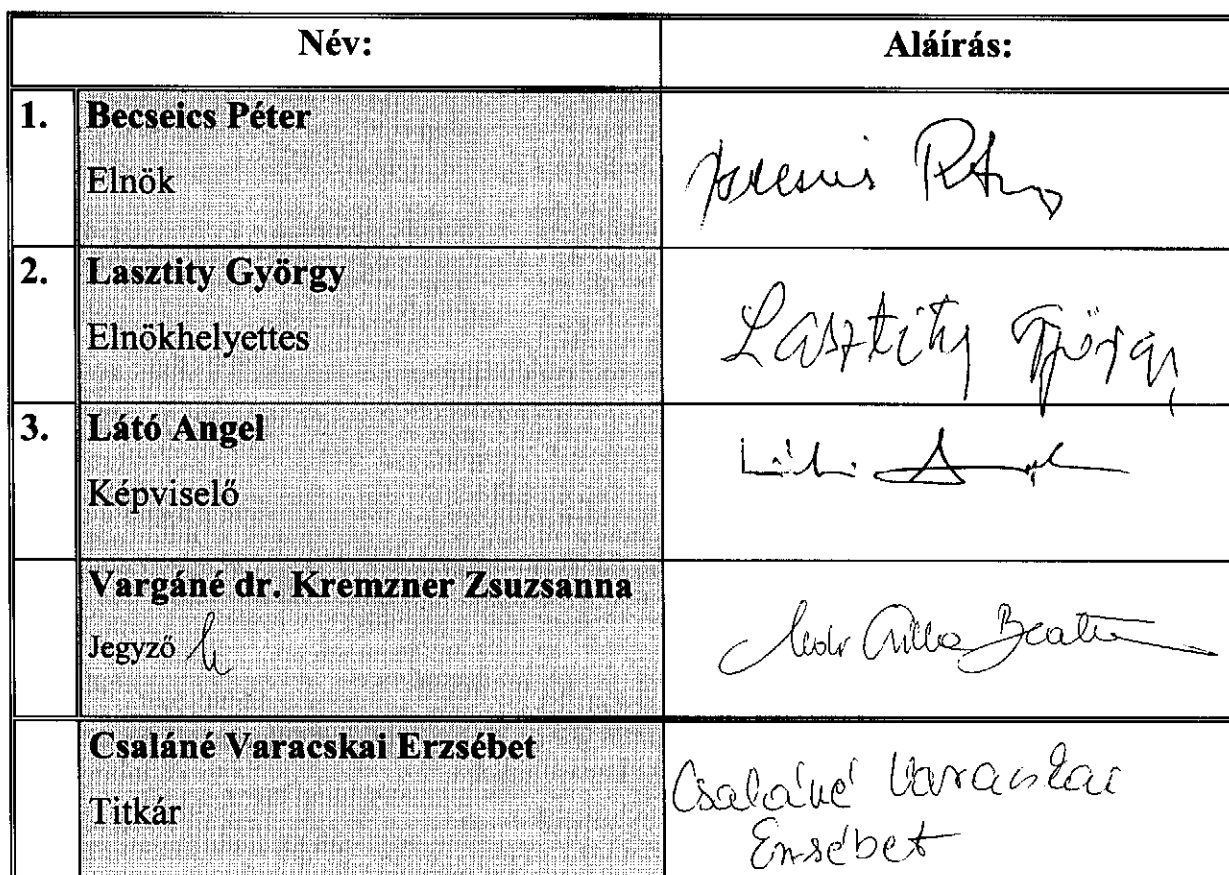 Név: Aláírás:
1. Becseics Péter
Elnök
2. Lasztity György
Elnökhelyettes
Lasztity György
3. Látó Angel
Képviselő
Vargáné dr. Kremzner Zsuzsanna
Jegyző
Csaláné Varacskai Erzsébet
Titkár
Csaláné Varacskai
Erzsébet